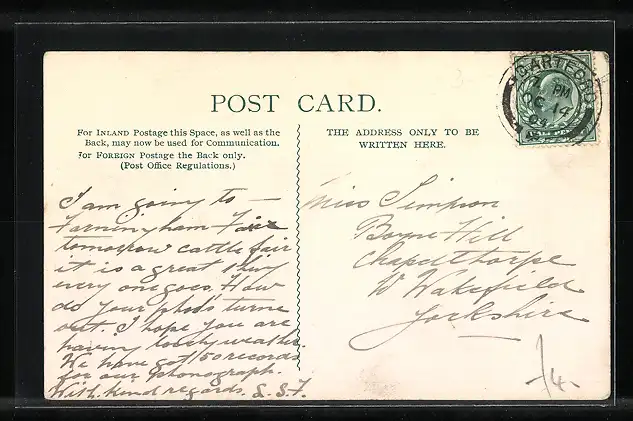 POST CARD.
For INLAND Postage this Space, as well as the
Back, may now be used for Communication.
For FOREIGN Postage the Back only.
(Post Office Regulations.)
THE ADDRESS ONLY TO BE
WRITTEN HERE.
DARTFORD
PM
OC 14
04
I am going to —
Farningham Fair
tomorrow cattle fair
it is a great thing
every one goes. How
do your photo's turne
out? I hope you are
having lovely weather.
We have got 150 records
for our phonograph.
With kind regards. S.S.F.
Miss Simpson
Boyne Hill
Chapelthorpe
W Wakefield
Yorkshire
/4.